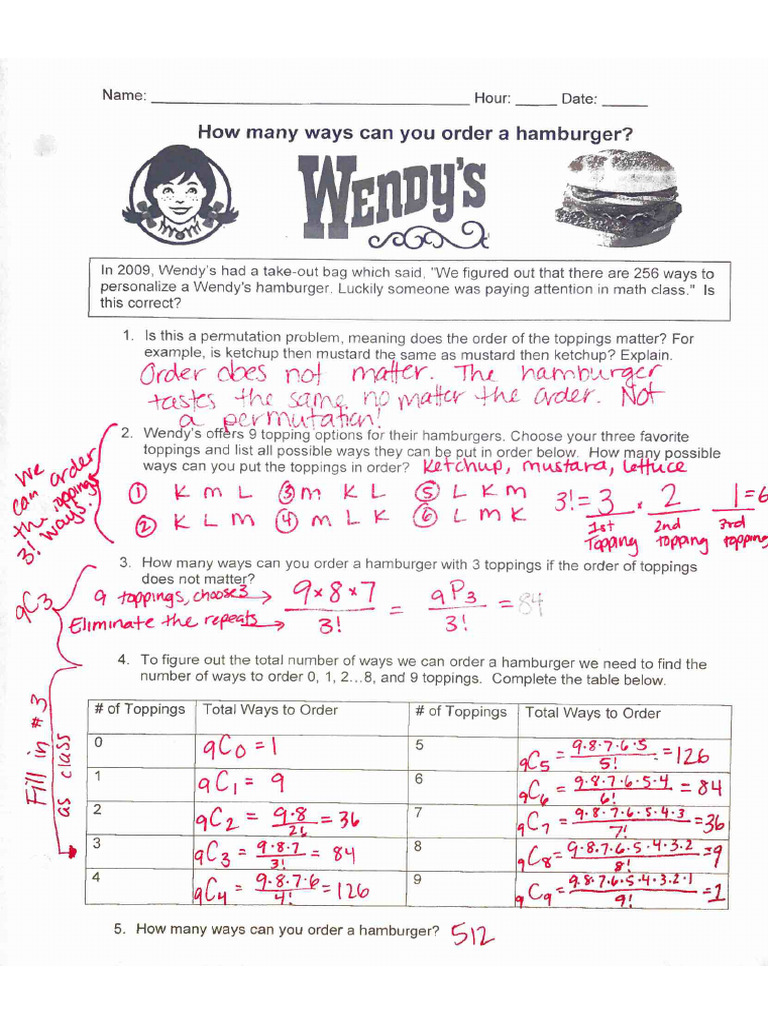 Name: ____________ Hour: _____ Date: ______
How many ways can you order a hamburger?
WENDY'S
In 2009, Wendy's had a take-out bag which said, "We figured out that there are 256 ways to
personalize a Wendy's hamburger. Luckily someone was paying attention in math class." Is
this correct?
1. Is this a permutation problem, meaning does the order of the toppings matter? For
example, is ketchup then mustard the same as mustard then ketchup? Explain.
Order does not matter. The hamburger
tastes the same no matter the order. Not
a permutation!
2. Wendy's offers 9 topping options for their hamburgers. Choose your three favorite
toppings and list all possible ways they can be put in order below. How many possible
ways can you put the toppings in order? Ketchup, mustard, lettuce
We
can order
the toppings
3! ways.
① K M L ③ M K L ⑤ L K M
② K L M ④ M L K ⑥ L M K
3! = 3 · 2 1 = 6
1st 2nd 3rd
Topping topping topping
3. How many ways can you order a hamburger with 3 toppings if the order of toppings
does not matter?
9C3
9 toppings, choose 3 → 9×8×7 / 3! = 9P3 / 3! = 84
Eliminate the repeats →
4. To figure out the total number of ways we can order a hamburger we need to find the
number of ways to order 0, 1, 2...8, and 9 toppings. Complete the table below.
Fill in #3
as class
# of Toppings Total Ways to Order # of Toppings Total Ways to Order
0 9C0 = 1 5 9C5 = 9·8·7·6·5 / 5! = 126
1 9C1 = 9 6 9C6 = 9·8·7·6·5·4 / 6! = 84
2 9C2 = 9·8 / 2! = 36 7 9C7 = 9·8·7·6·5·4·3 / 7! = 36
3 9C3 = 9·8·7 / 3! = 84 8 9C8 = 9·8·7·6·5·4·3·2 / 8! = 9
4 9C4 = 9·8·7·6 / 4! = 126 9 9C9 = 9·8·7·6·5·4·3·2·1 / 9! = 1
5. How many ways can you order a hamburger? 512